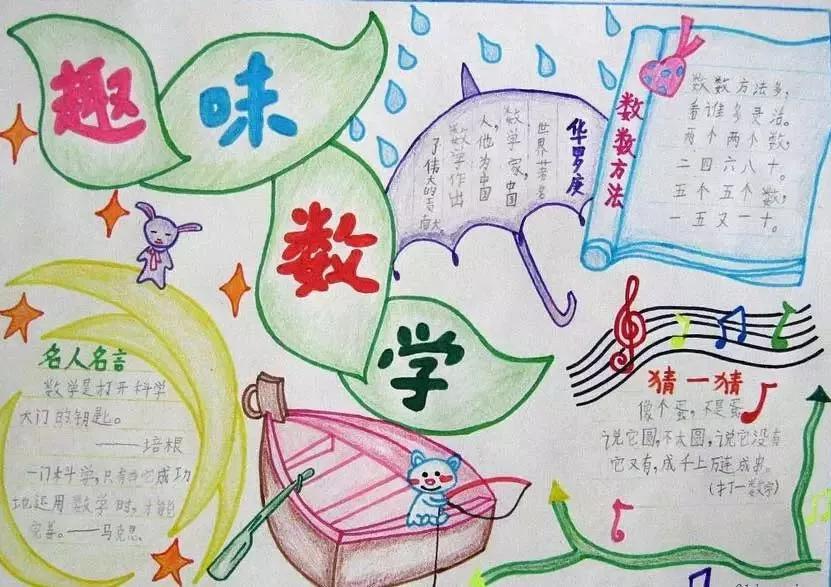 趣味数学
华罗庚
世界著名
数学家,中国
人,他为中国
数学作出
了伟大的贡献。
数数方法
数数方法多,
看谁多灵活。
两个两个数,
二四六八十。
五个五个数,
一五又一十。
名人名言
数学是打开科学
大门的钥匙。
——培根
一门科学,只有当它成功
地运用数学时,才能
完善。——马克思
猜一猜
像个蛋,不是蛋
说它圆,不太圆,说它没有
它又有,成千上万连成串。
(打一数字)